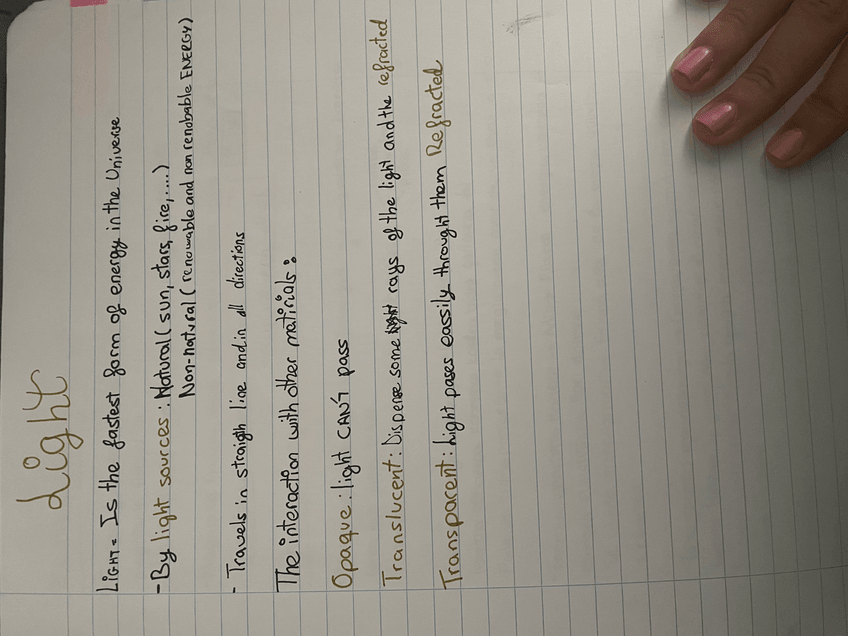 Light
LIGHT = Is the fastest form of energy in the Universe
- By light sources : Natural ( sun, stars, fire, .... )
Non-natural ( renowable and non renobable ENERGY )
- Travels in straigth line and in all directions
The interaction with other matirials :
Opaque : light CAN'T pass
Translucent : Dispense some rays of the light and the refracted
Transparent : Light pases eassily throught them Refracted